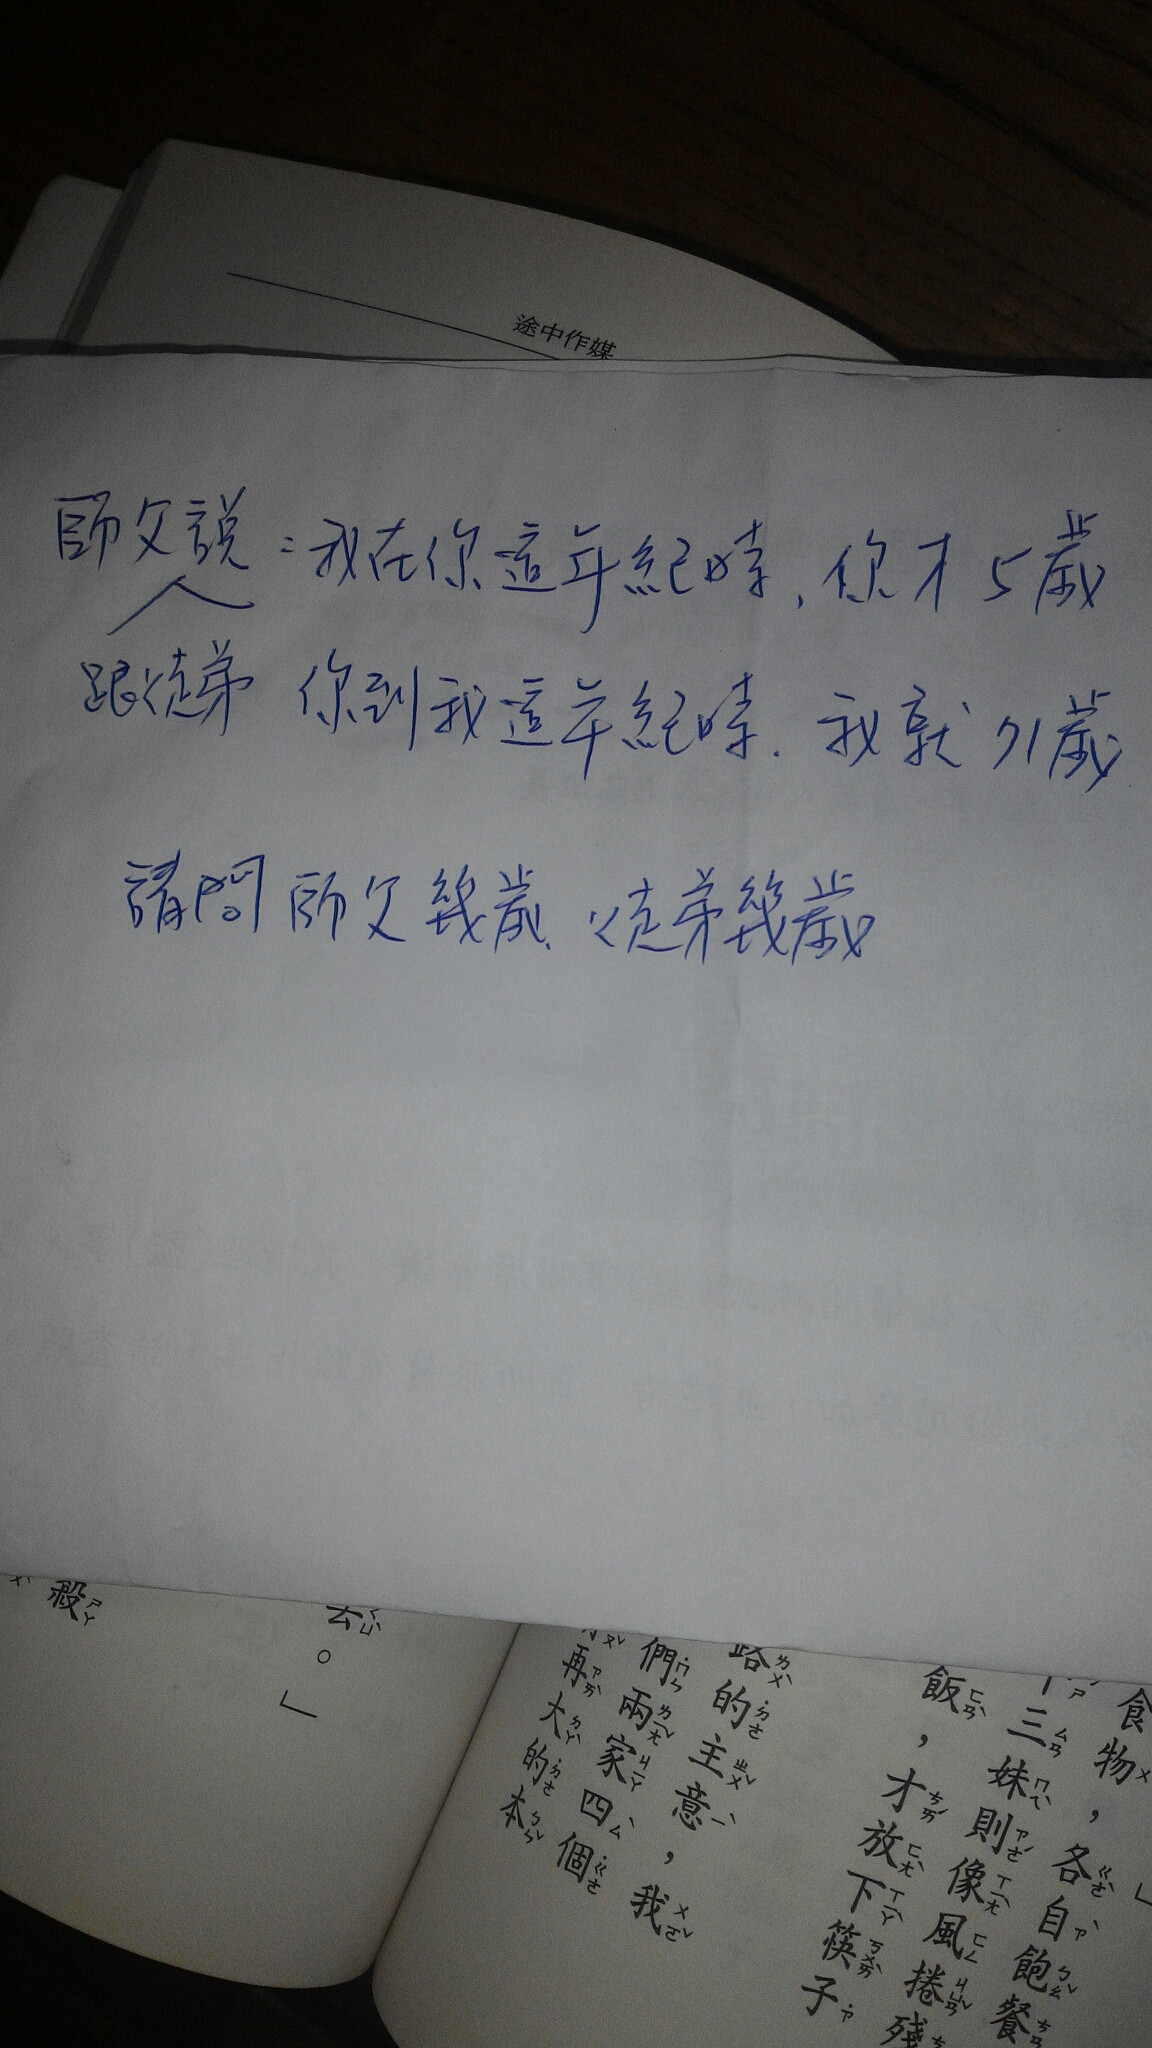 途中作媒
師父說：我在你這年紀時、你才5歲
人
跟徒弟 你到我這年紀時、我就71歲
請問師父幾歲、徒弟幾歲
食物，各自飽餐
三妹則像風捲殘
飯，才放下筷子
路的主意，我
們兩家四個
再大的本
去。」
殺